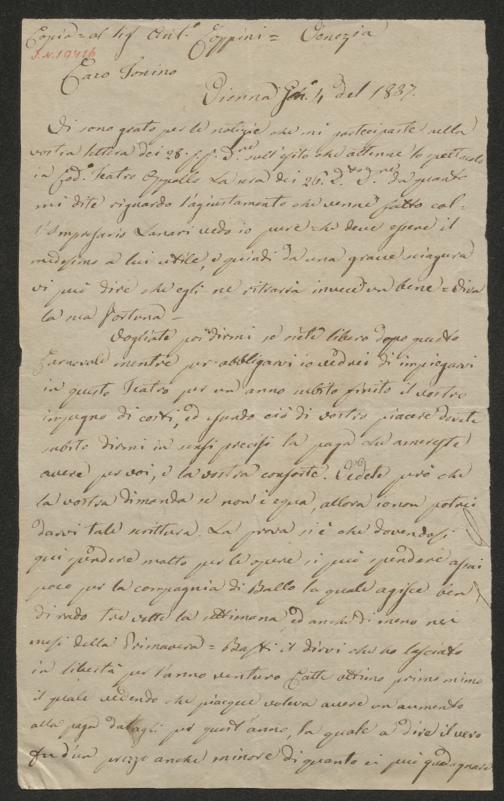 Copia = al Sig.r Ant.o Coppini = Venezia
I.N. 19416
Caro Tonino
Vienna 4 del 1837.
Vi sono grato per le notizie che mi partecipaste nella
vostra lettera dei 28. p. p. D.re sull'esito che ottenne lo spettacolo
in Teatro Appollo la sera dei 26. da quanto
mi dite riguardo l'agiustamento che venne fatto col-
l'Impresario Lanari vedo io pure che deve essere il
medesimo a lui utile, e quindi da una grave sciagura
si può dire che egli ne ritrarrà invece un bene = Viva
la sua fortuna =
Vogliate poi dirmi se siete libero dopo questo
Carnovale mentre per obbligarvi io vedrei di impiegarvi
in questo Teatro per un anno subito finito il vostro
impegno di costì, ed essendo ciò di vostro piacere dovete
subito dirmi in sensi precisi la paga che amereste
avere per voi, e la vostra consorte. Vedete però che
la vostra dimanda se non è equa, allora io non potrei
darvi tale scrittura. La prova si è che dovendosi
qui spendere molto per le opere si può spendere assai
poco per la compagnia di Ballo la quale agisce ben
di rado tre volte la settimana, ed anche di meno nei
mesi della Primavera = Basti il dirvi che ho lasciato
in libertà per l'anno venturo Catte ottimo primo mimo
il quale vedendo che piacque voleva avere un aumento
alla paga datagli per quest'anno, la quale a dire il vero
fu d'un prezzo anche minore di quanto ei può guadagnare